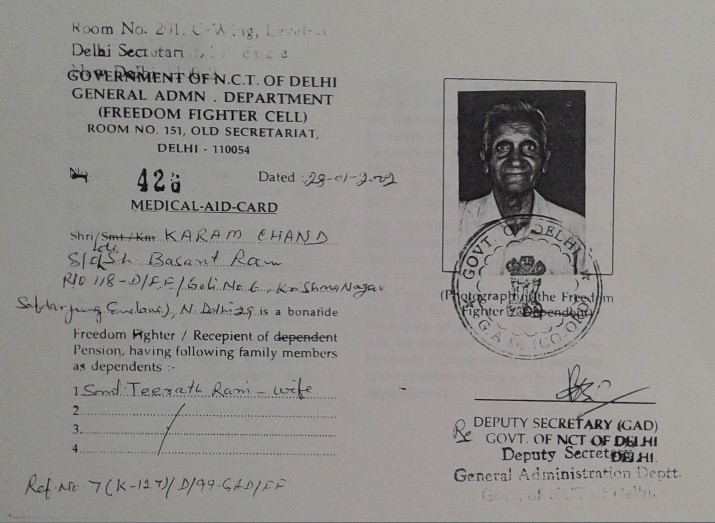 Room No. 201, C-Wing,
Delhi Secretari
New Delhi
GOVERNMENT OF N.C.T. OF DELHI
GENERAL ADMN . DEPARTMENT
(FREEDOM FIGHTER CELL)
ROOM NO. 151, OLD SECRETARIAT,
DELHI - 110054
No 426 Dated : 28-01-2002
MEDICAL-AID-CARD
Shri/Smt/Km KARAM CHAND
S/o Sh Basant Ram
R/O 118-D/FF/Gali No 6, Krishna Nagar
Safdarjung Enclave), N. Delhi 29 is a bonafide
Freedom Fighter / Recepient of dependent
Pension, having following family members
as dependents :-
1 Smt. Teerath Rani - wife
2
3
4
Ref. No. 7(K-127)/D/99-GAD/FF
GOVT. OF DELHI
G.A.D. (CO-ORD)
(Photograph of the Freedom
Fighter / Dependent)
DEPUTY SECRETARY (GAD)
GOVT. OF NCT OF DELHI
Deputy Secretary DELHI.
General Administration Deptt.
Govt. of NCT of Delhi.